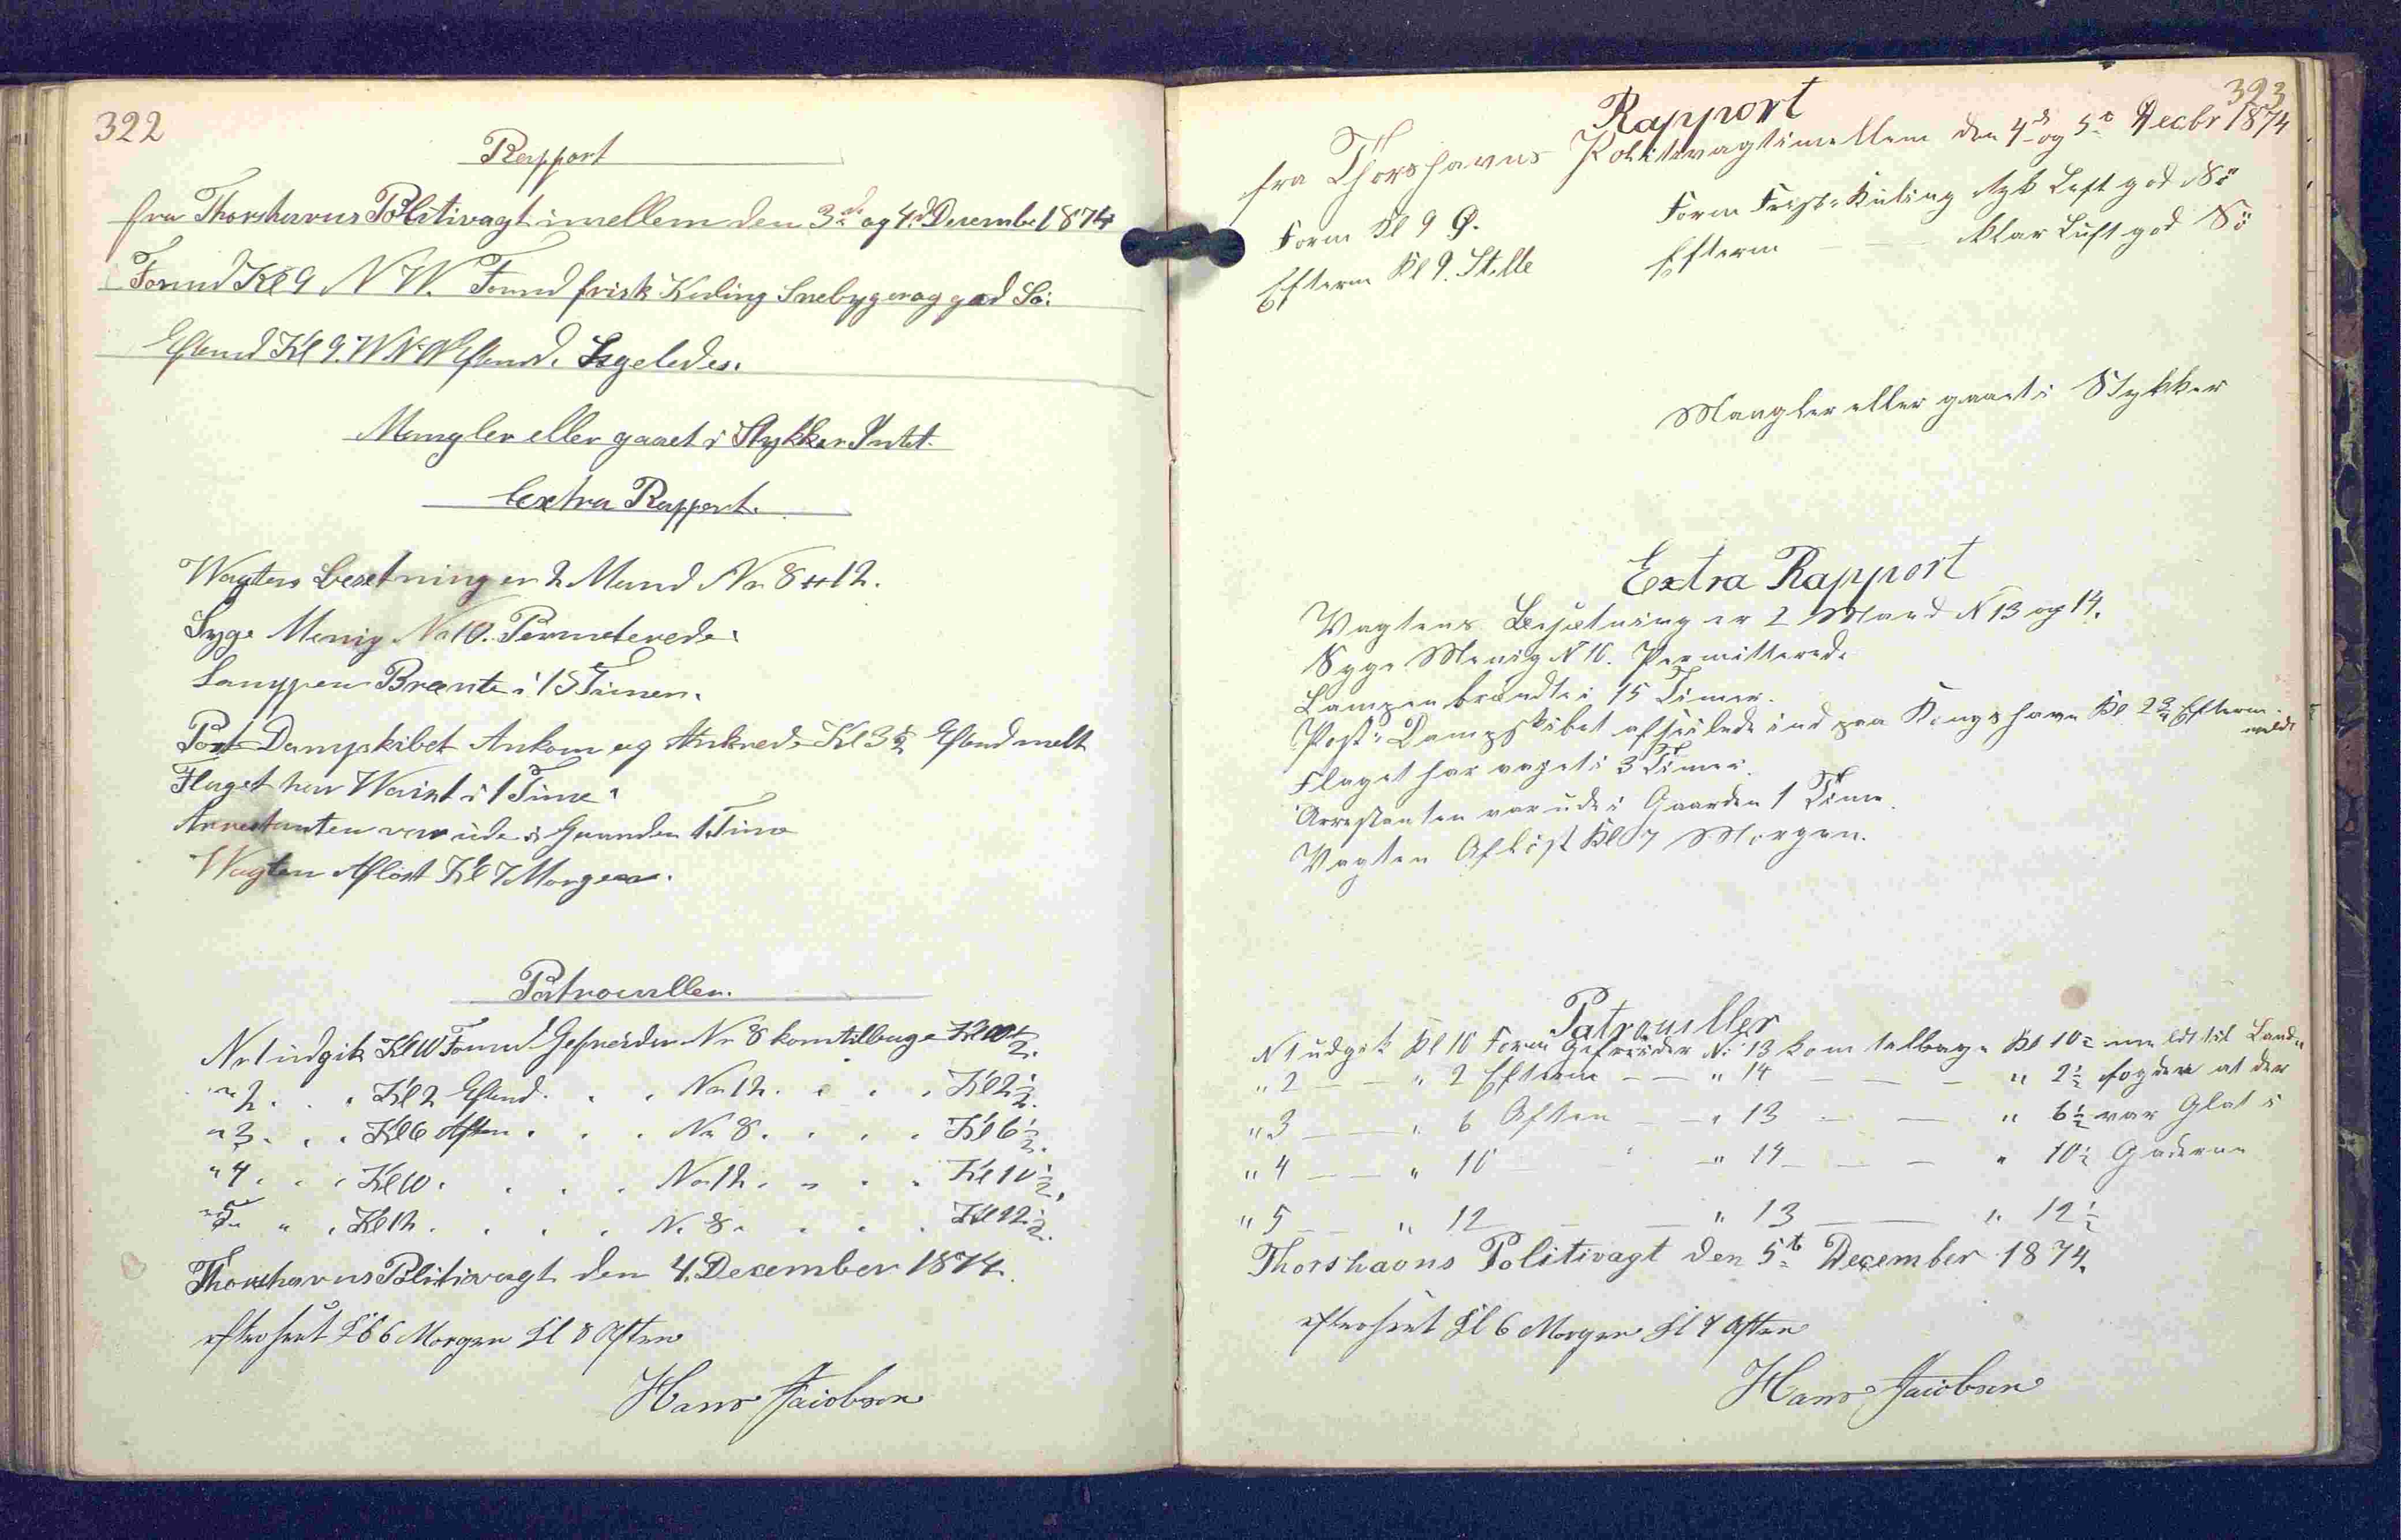 322
Rapport
fra Thorshavns Politivagt imellem den 3de og 4d December 1874
Formd Kl 9 N W. Formd frisk Kuling Snebyger og god Sö:
Eftmd Kl 9. W N W Eftmd. Ligeledes.
Mangler eller gaaet i Stykker Intet.
Extra Rapport.
Wagtens Besetning er 2 Mand No 8 & 12.
Syge Menig No 10. Permeterede:
Lamppen Brænte i 15 Timer.
Post Dampskibet Ankom og Ankrede Kl 3½ Eftmd melt
Flaget har Waiet i 1 Time.
Arrestanten var ude i Gaarden 1 Time
Wagten Aflöst Kl 7 Morgen.
Patrouiller.
Nr 1 udgik Kl 10 Formd Gefreider Nr 8 kom tilbage Kl 10½.
" 2 . . . Kl 2 Eftmd . . . No 12 . . . . Kl 2½.
" 3 . . . Kl 6 Aften . . . No 8 . . . . Kl 6½.
" 4 . . . Kl 10 . . . . No 12 . . . . Kl 10½.
" 5 " . Kl 12 . . . . N. 8 . . . . Kl 12½.
Thorshavns Politivagt den 4. December 1874.
efterseet Kl 6 Morgen Kl 8 Aften
Hans Jacobsen
323
Rapport
fra Thorshavns Politivagt imellem den 4d og 5t Decbr 1874
Form Kl 9 Ø. Form Frisk Kuling Tyk Luft god Sö
Efterm Kl 9. Stille Efterm — — klar Luft god Sö
Mangler eller gaaet i Stykker
Extra Rapport
Vagtens Besætning er 2 Mand N 13 og 14.
Syge Menig N 10. Permitterede
Lampen brændte i 15 Timer.
Post Dampskibet afseilede ind paa Kongshavn Kl 2¾ Efterm.
meldt
Flaget har vajet i 3 Timer.
Arrestanten var ude i Gaarden 1 Time.
Vagten Aflöst Kl 7 Morgen.
Patrouiller
N 1 udgik Kl 10 Form Gefreider N: 13 kom tilbage Kl 10½ meldt til Land-
" 2 — — " 2 Efterm — — " 14 — — — " 2½ fogden at der
" 3 — — " 6 Aften — — " 13 — — " 6½ var Glat i
" 4 — — " 10 — " 14 — — — " 10½ Gaderne
" 5 — — " 12 — — " 13 — — " 12½
Thorshavns Politivagt den 5t December 1874.
efterseet Kl 6 Morgen Kl 9 Aften
Hans Jacobsen